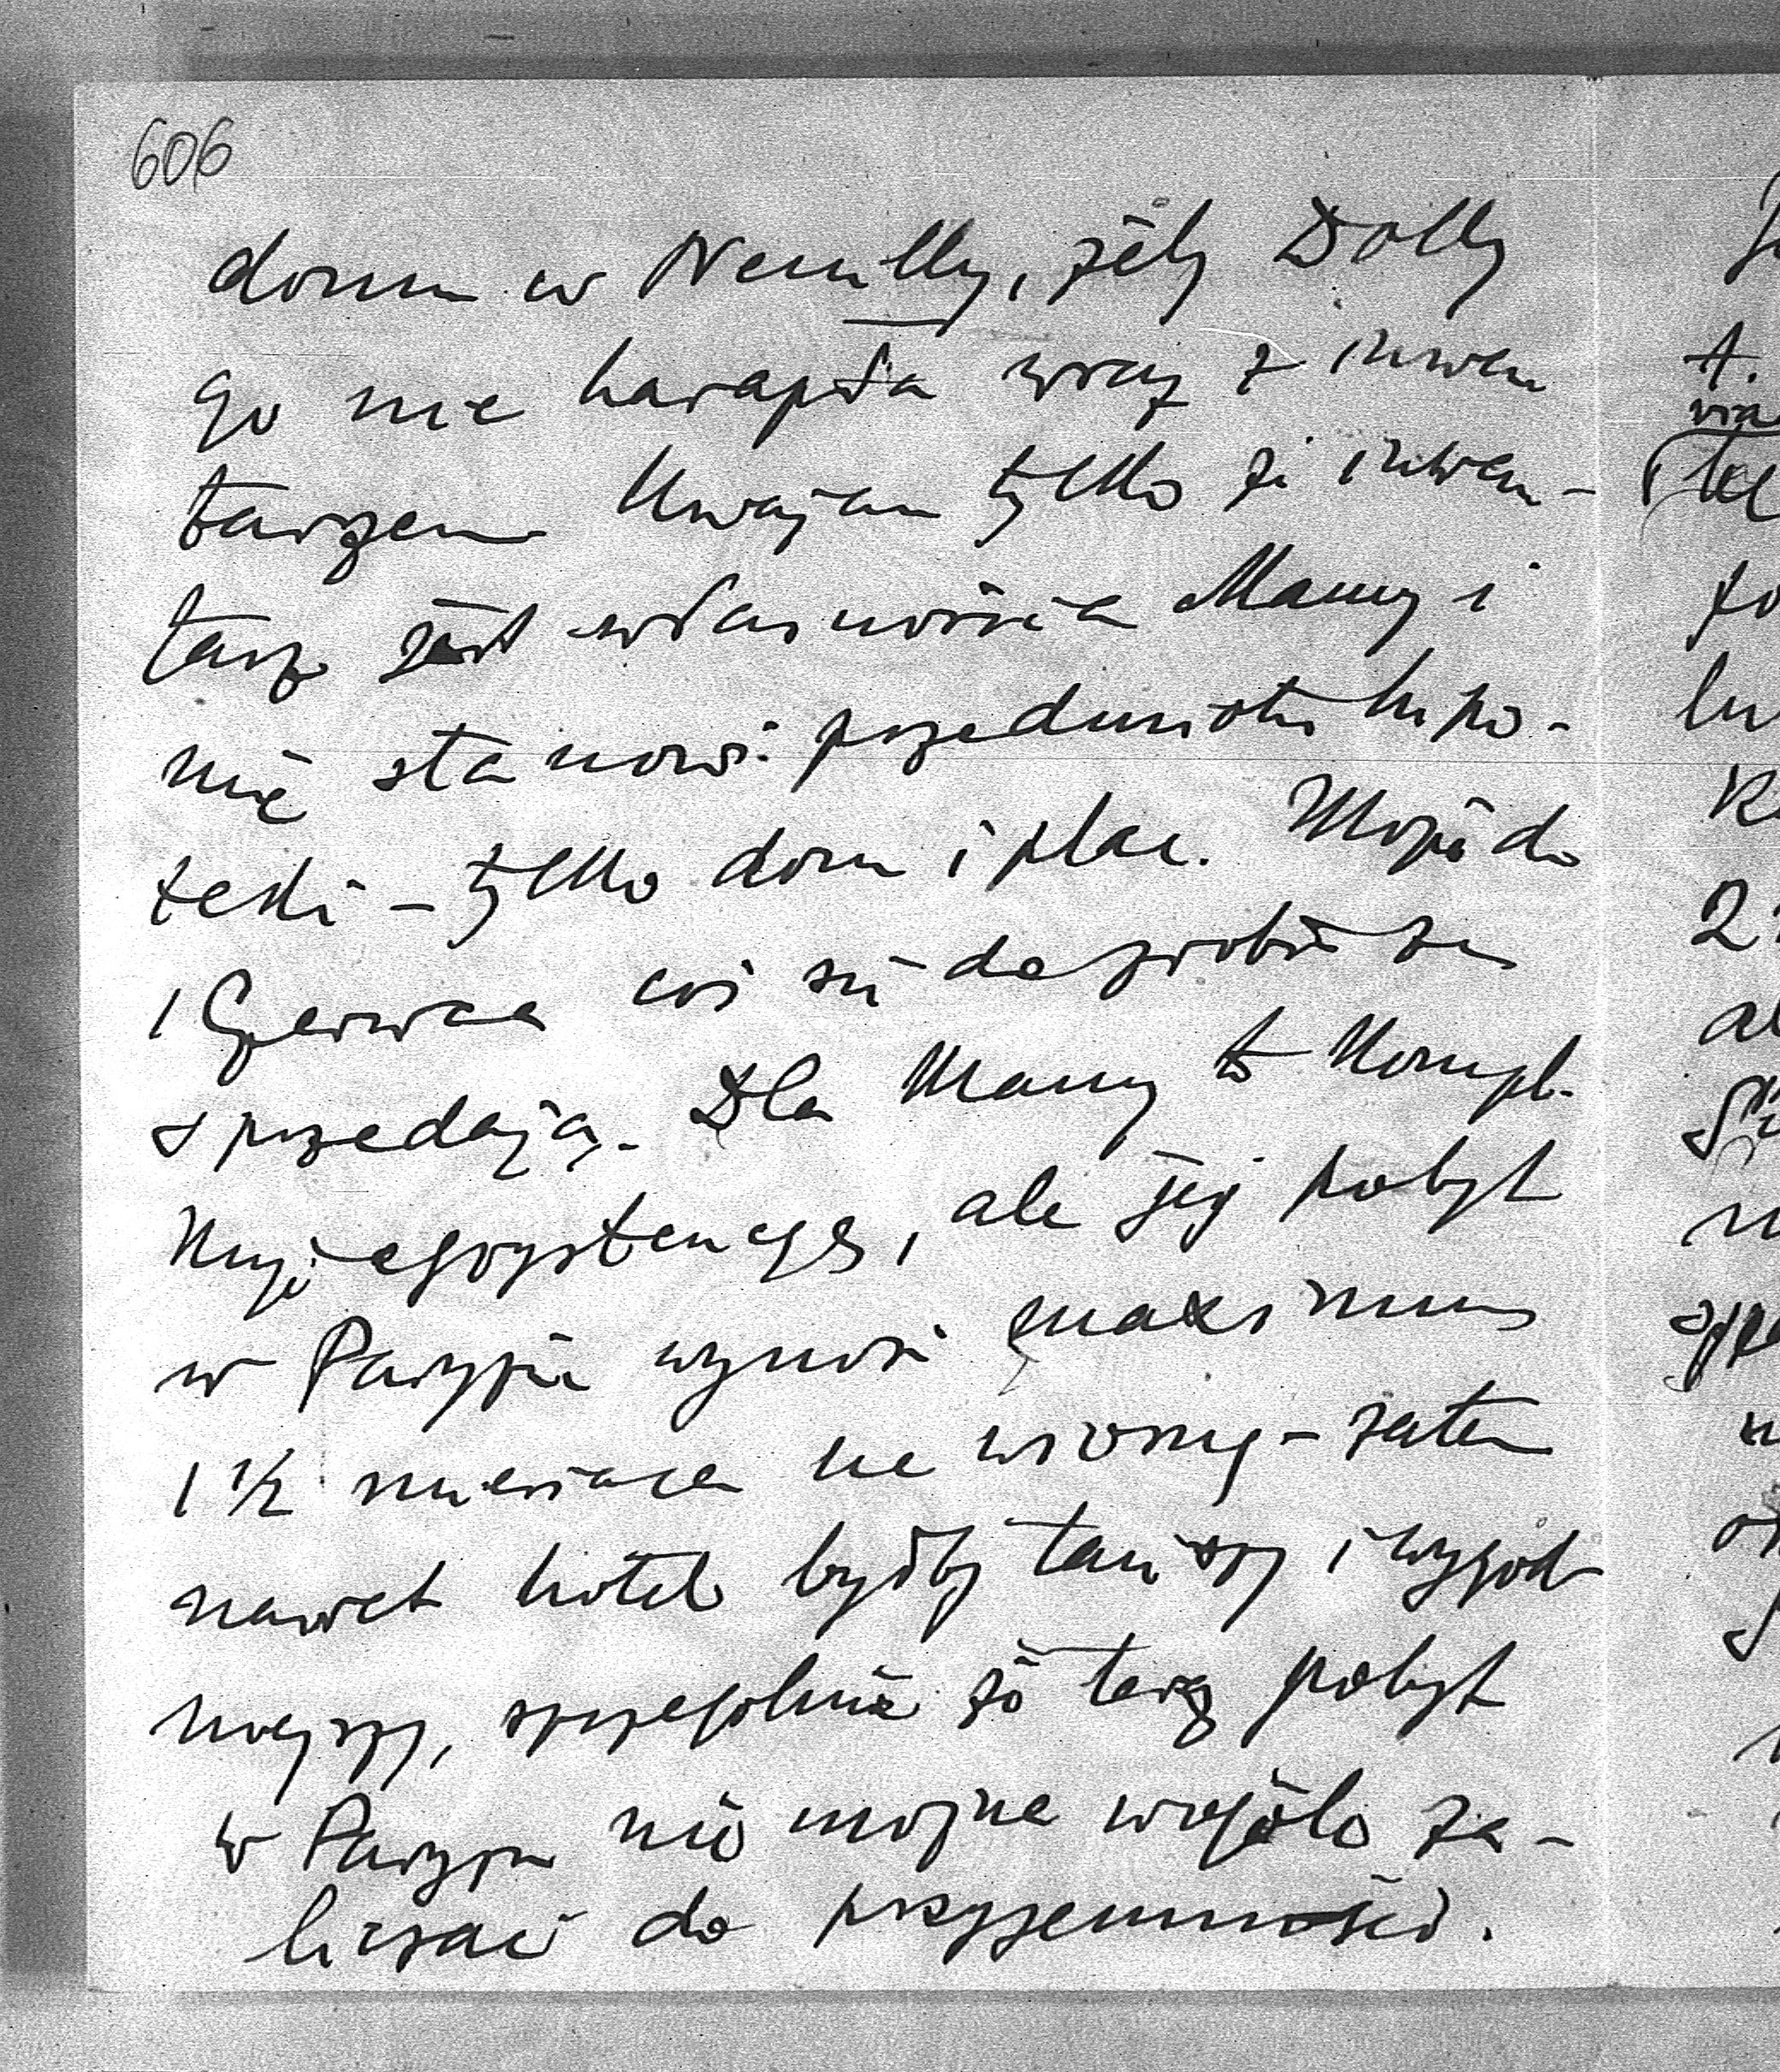 606
domu w Neuilly, żeby Dolly
go nie harapła wraz z inwen
tarzem Uważam tylko że inwen-
tarz jest własnością Mamy i
nie stanowi przedmiotu hipo-
teki - tylko dom i plac. Może do
1 Czerwca coś się da zrobić ze
sprzedażą. Dla Mamy to kompl.
kuje egzystencję, ale jej pobyt
w Paryżu wynosi maximum
1 1/2 miesiąca na wiosnę - zatem
nawet hotel byłby tańszy i wygod
niejszy, szczególnie że teraz pobyt
w Paryżu nie można wogóle za-
liczać do przyjemności.